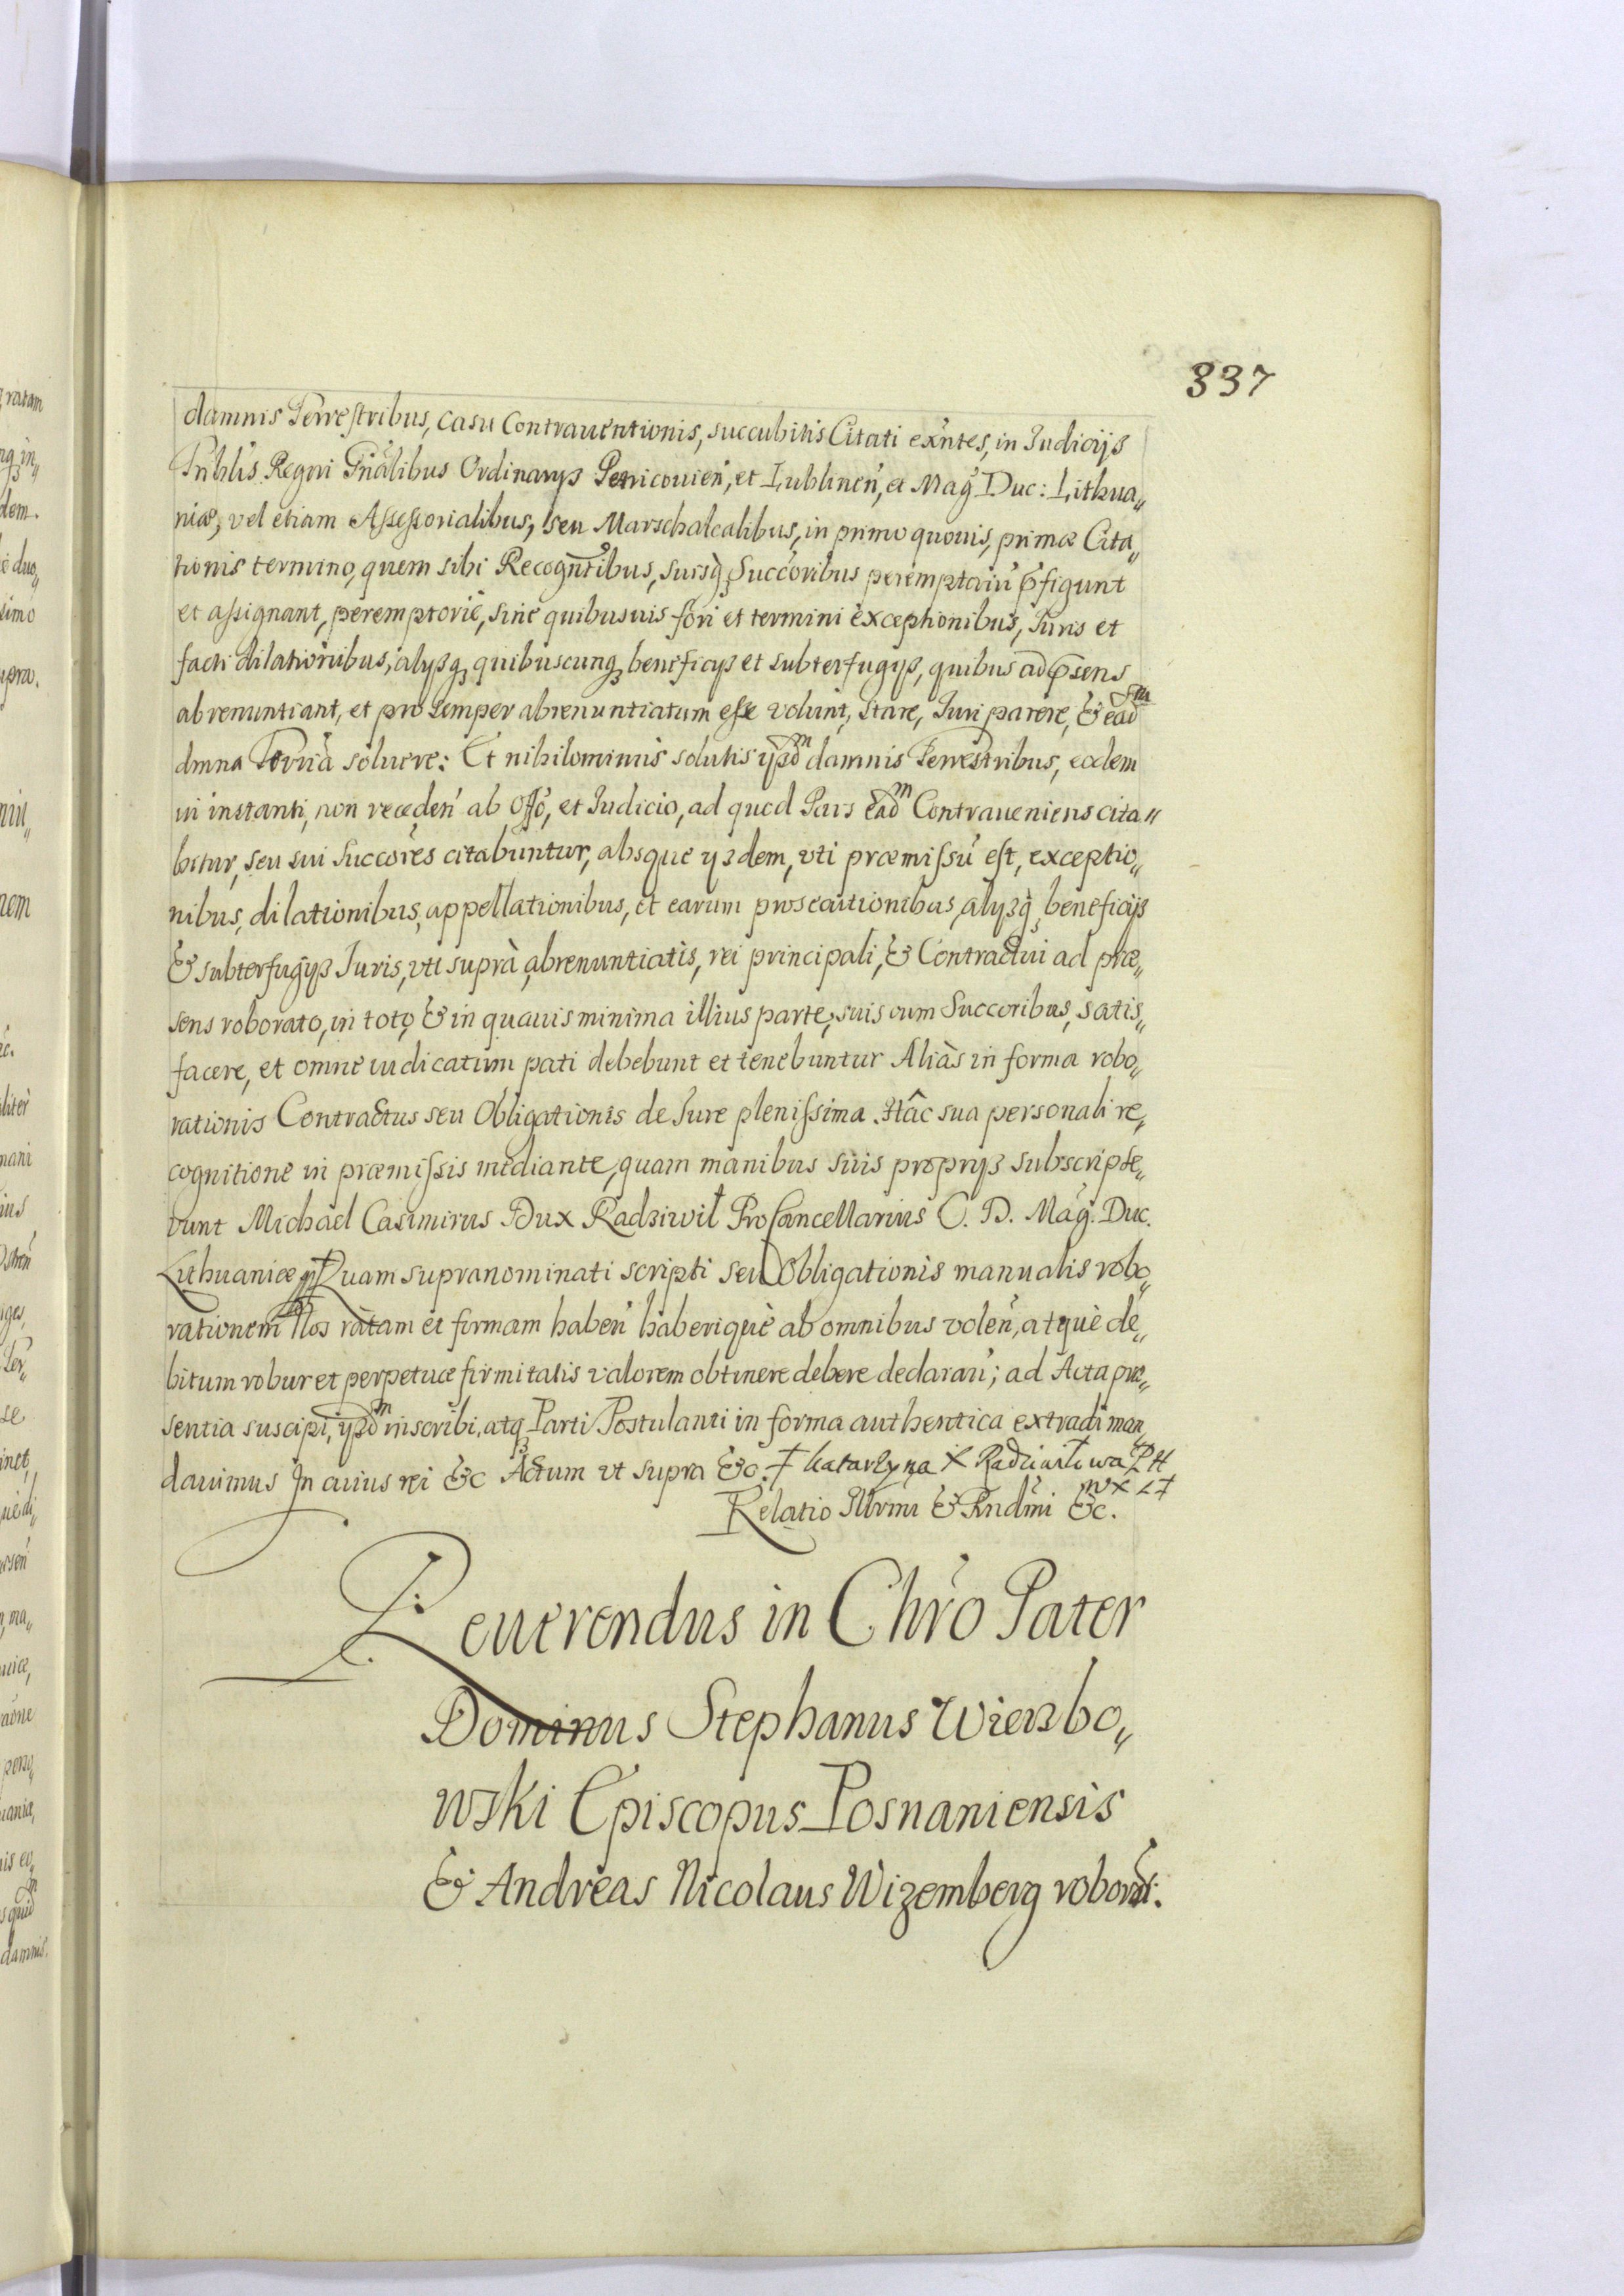 337
damnis Terrestribus, casu Contrauentionis, succubitis Citati exńtes, in Iudicijs
Tribńlis Regni Gńalibus Ordinarijs Petricouień, et Lublineń, et Mag̃ Duc: Lithua„
niæ, vel etiam Assessorialibus, seu Marschalcalibus, in primo quouis, primæ Cita„
tionis termino, quem sibi Recogńtibus, suisq̨ Succoribus peremptoriū p̃figunt
et assignant, peremptoriè, sine quibusuis fori et termini exceptionibus, Iuris et
facti dilationibus, alysq̨ quibuscunq̨ beneficijs et subterfugijs, quibus ad p̃sens
abrenuntiant, et pro semper abrenuntiatum esse volunt, stare, Iuri parere, & eadm
dmna Terria soluere: Et nihilominus solutis ysdm damnis Terrestribus, eodem
in instanti, non recedeń ab Offo, et Iudicio, ad quod Pars eadm Contraueniens cita„
bitur, seu sui Succores citabuntur, absque yzdem, vti præmissū est, exceptio„
nibus, dilationibus, appellationibus, et earum prosecutionibus, alyzq̨ beneficijs
& subterfugijs Iuris, vti suprà abrenuntiatis, rei principali, & Contractui ad præ„
sens roborato, in toto, & in quauis minima illius parte, suis cum Succoribus, satis„
facere, et omne iudicatum pati debebunt et tenebuntur Aliàs in forma robo„
rationis Contractus seu Obligationis de Iure plenissima. Hâc sua personali re„
cognitione in præmissis mediante, quam manibus suis proprijs subscripse„
runt Michael Casimirus Dux Radziwił ProCancellarius C. D. Mag̃. Duc.
Lithuaniæ Quam supranominati scripti seu Obligationis manualis robo„
rationem Nos ratam et firmam habeń haberique ab omnibus voleń, atque de„
bitum robur et perpetuæ firmitatis valorem obtinere debere declarań; ad Acta præ„
sentia suscipi, ysdm inscribi, atq̨ Parti Postulanti in forma authentica extradi man„
dauimus In cuius rei &c Actum vt supra &c. Katarzyna X Radziwiłowa P H
W X L
Relatio Illrmi & Rndmi &c.
Reuerendus in Chro Pater
Dominus Stephanus Wierzbo„
wski Episcopus Posnaniensis
& Andreas Nicolaus Wizemberg roborat.